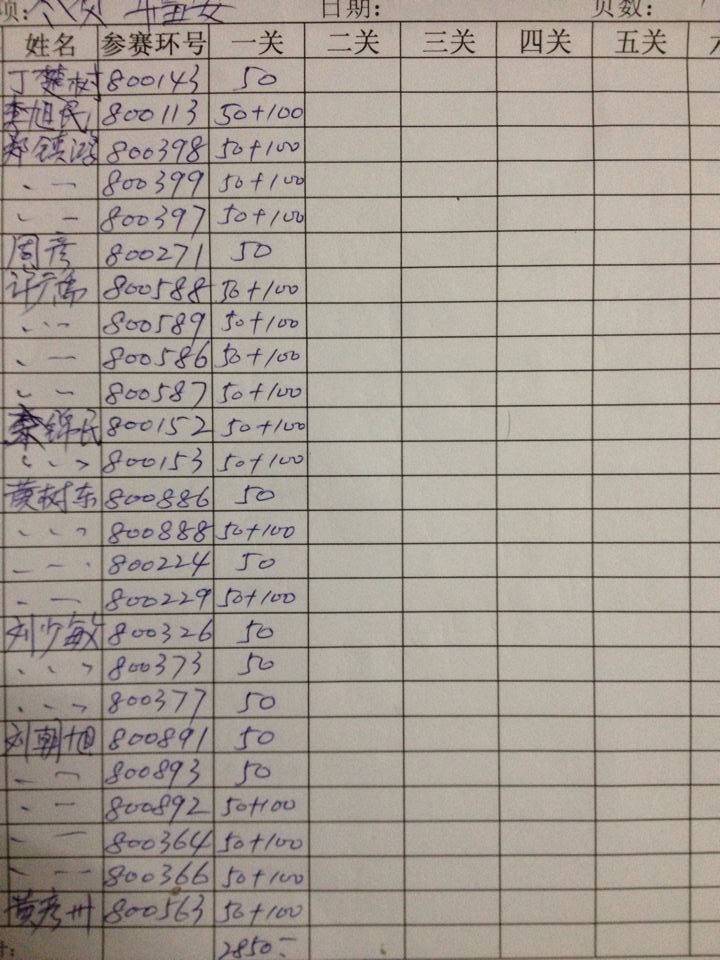 项: 日期: 页数:
姓名 参赛环号 一关 二关 三关 四关 五关
丁楚树 800143 50
李旭民 800113 50+100
郑镇鸿 800398 50+100
、一 800399 50+100
、一 800397 50+100
周彦 800271 50
许广为 800588 50+100
、、一 800589 50+100
、一 800586 50+100
、一 800587 50+100
秦锦民 800152 50+100
、、、 800153 50+100
黄树东 800886 50
、、、 800888 50+100
、一、 800224 50
、一 800229 50+100
刘少敏 800326 50
、、、 800373 50
、、、 800377 50
刘朝旭 800891 50
、一 800893 50
、一 800892 50+100
、一 800364 50+100
、一 800366 50+100
黄彦卅 800563 50+100
2850-